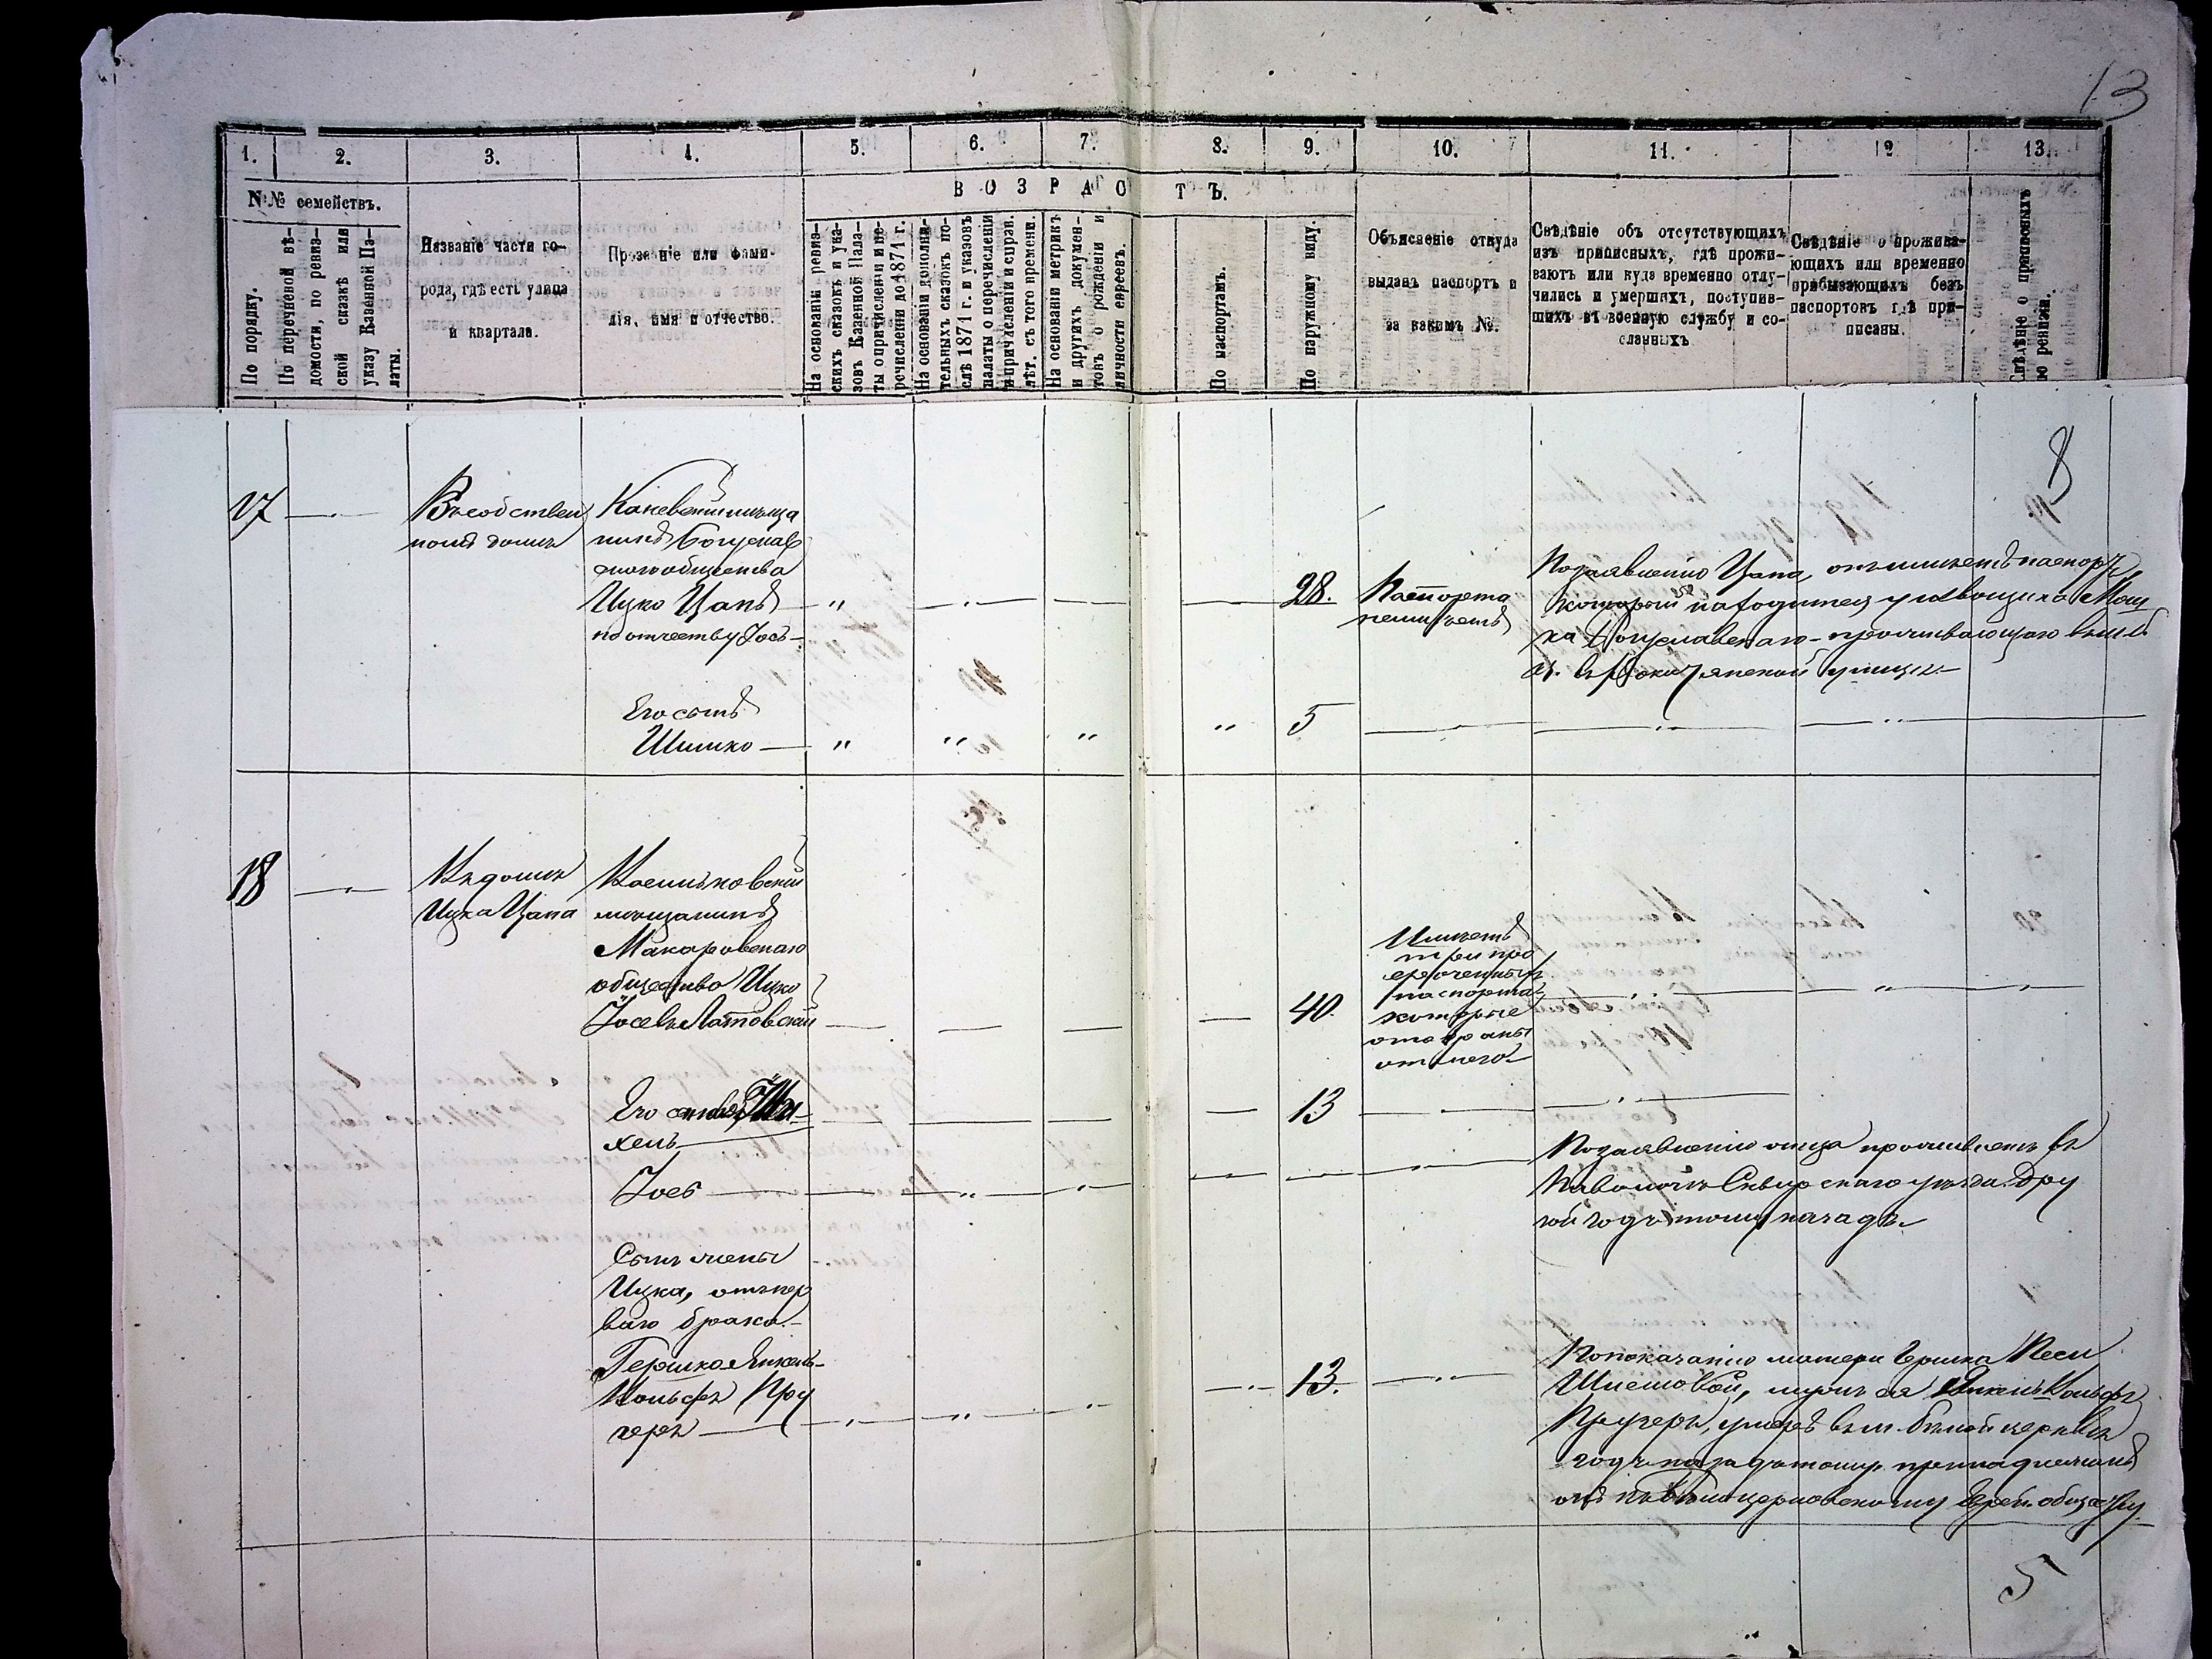 13
1. 2. 3. 4. 5. 6. 7. 8. 9. 10. 11. 12 13.
№№ семействъ.
ВОЗРАСТЪ.
По порядку.
По перечневой вѣ-
домости, по ревиз-
ской сказкѣ или
указу Казенной Па-
латы.
Названіе части го-
рода, гдѣ есть улица
и квартала.
Прозваніе или фами-
лія, имя и отчество.
На основаніи ревиз-
скихъ сказокъ и ука-
зовъ Казенной Пала-
ты о причисленіи и пе-
речисленіи до 1874 г.
На основаніи дополни-
тельныхъ сказокъ по-
слѣ 1874 г. и указовъ
палаты о перечисленіи
и причисленіи и справ.
лѣт. съ того времени.
На основаніи метрикъ
и другихъ докумен-
товъ о рожденіи и
личности евреевъ.
По паспортамъ.
По наружному виду.
Объясненіе откуда
выданъ паспортъ и
за какимъ №.
Свѣдѣніе объ отсутствующихъ
изъ приписныхъ, гдѣ прожи-
ваютъ или куда временно отлу-
чились и умершихъ, поступив-
шихъ въ военную службу и со-
сланныхъ
Свѣдѣніе о прожива-
ющихъ или временно
прибывающихъ безъ
паспортовъ гдѣ при-
писаны.
Свѣдѣніе о
по ревизіи.
8
17
Въ собствен
номъ домѣ
Каневскій мѣща
нинъ Богуслав
скаго общества
Ицко Цапъ
по отчеству Іось
28.
Паспорта
неимѣетъ
По заявленію Цапа, онъ имѣетъ паспортъ
который находится у извощика Мош
ка Богуславскаго - проживающаго въ
Его сынъ
Шлиомко
5
18
Въ домѣ
Ицка Цапа
Васильковскій
мѣщанинъ
Макаровскаго
общества Ицко
Іосевъ Латовскій
40.
Имѣетъ
три про
сроченныхъ
паспорта,
которые
отобраны
отъ него
Его сыновья
хель
13
Іосъ
По заявленію отца проживаетъ въ
Паволочѣ Сквирскаго уѣзда. Дру
гой годъ тому назадъ.
Сынъ жены
Ицка, отъ пер
ваго брака.
Гершко Янкель-
Вольфъ Пру
черъ
13.
По показанію матери Гершка Песи
мужъ ея Янкель Вольфъ
Пручеръ, умеръ въ м. Бѣлой церквѣ
годъ назадъ тому, принадлежитъ
онъ къ Бѣлоцерковскому Еврей. обществу
5